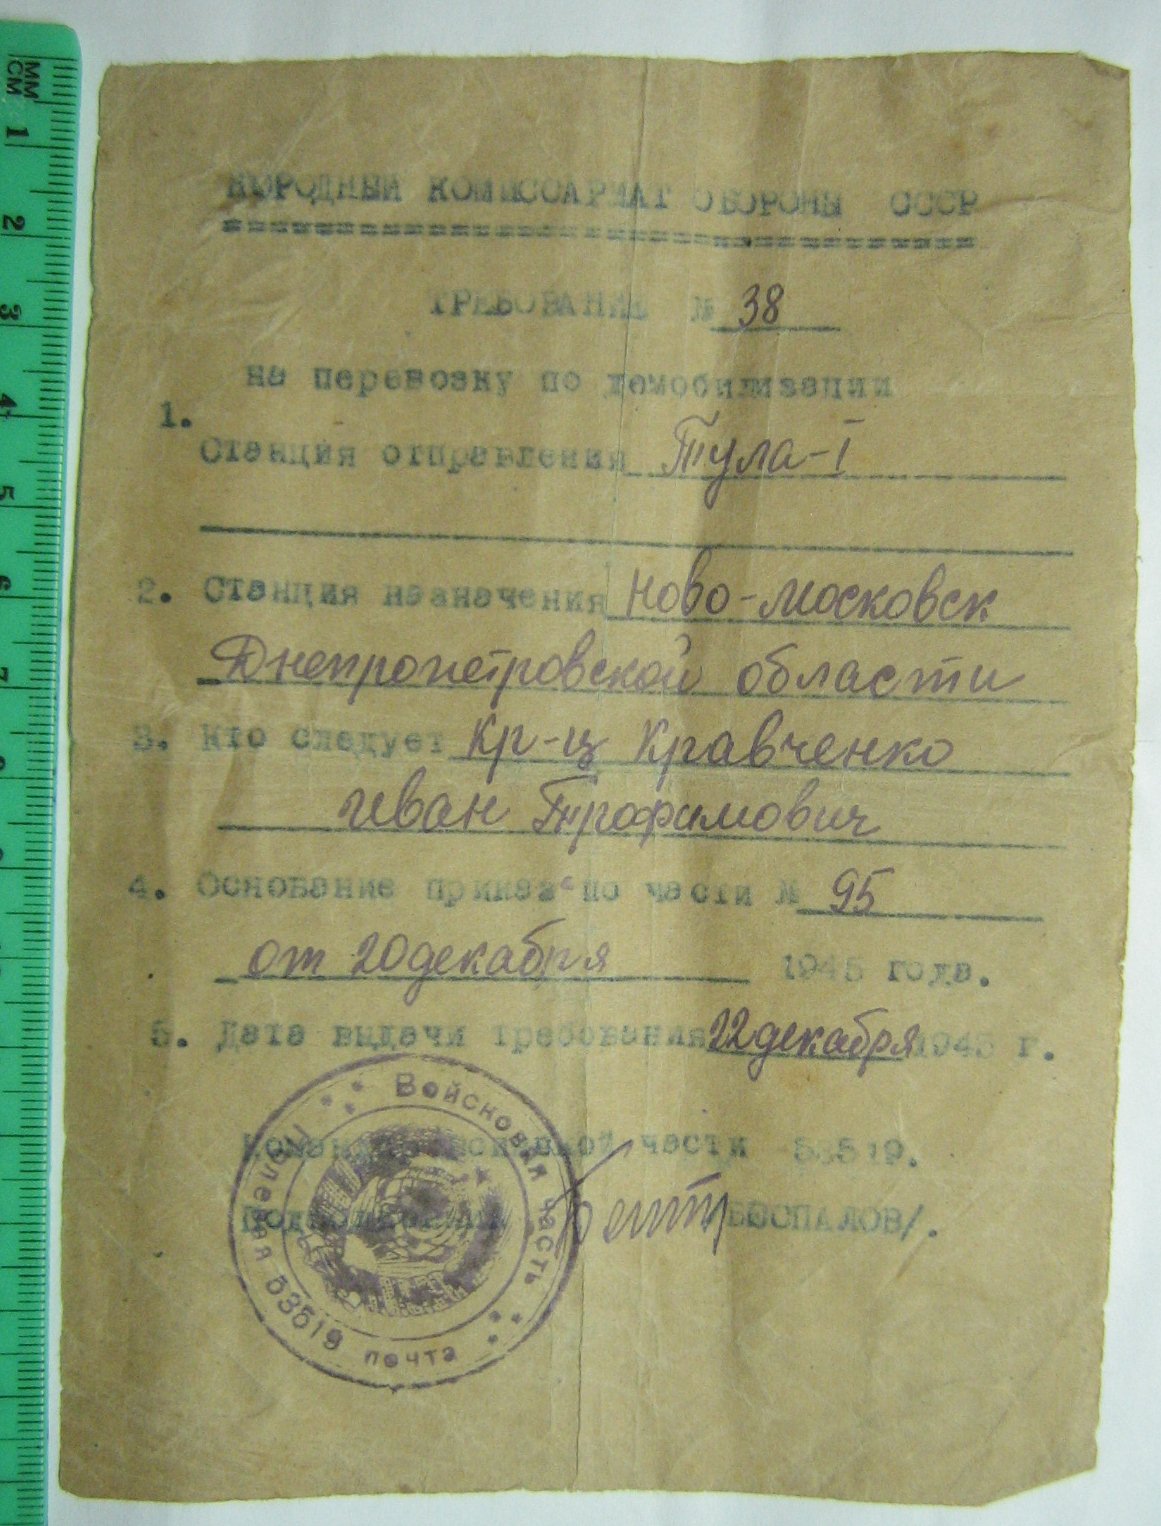 ММ
СМ
1
2
3
4
5
6
7
НАРОДНЫЙ КОМИССАРИАТ ОБОРОНЫ СССР
ТРЕБОВАНИЕ № 38
на перевозку по демобилизации
1.
Станция отправления Тула-I
2. Станция назначения Ново-Московск
Днепропетровской области
3. Кто следует Кр-ц Кравченко
Иван Трофимович
4. Основание приказ по части № 95
от 20 декабря 1945 года.
5. Дата выдачи требования 22 декабря 1945 г.
Командир войсковой части 53519.
Подполковник БЕСПАЛОВ/.
Войсковая часть
Полевая 53519 почта